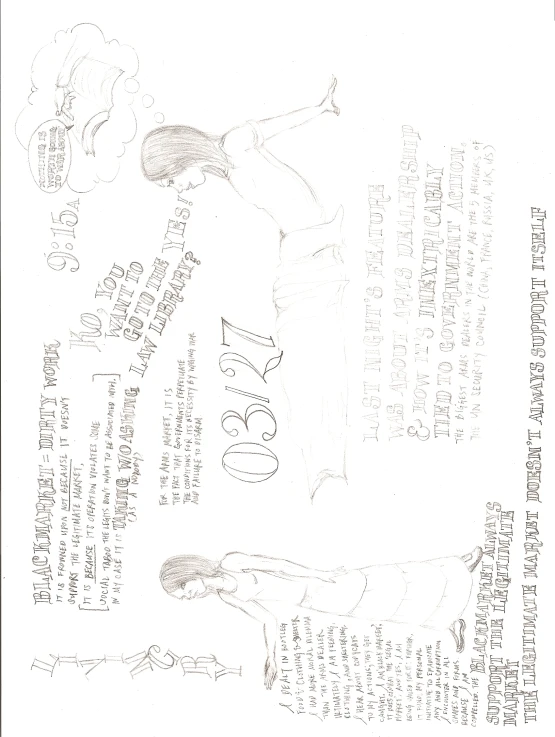 BLACKMARKET = DIRTY WORK
IT IS FROWNED UPON NOT BECAUSE IT DOESN'T
SUPPORT THE LEGITIMATE MARKET,
IT IS BECAUSE ITS OPERATION VIOLATES SOME
SOCIAL TABOO THE LEGITS DON'T WANT TO BE ASSOCIATED WITH.
IN MY CASE IT IS TAKING WO ASKING
(AS A NOBODY)
9:15A
NOTHING IS
WORTH GOING
TO WAR ABOUT
KO, YOU
WANT TO
GO TO THE
LAW LIBRARY?
YES!
FOR THE ARMS MARKET, IT IS
THE FACT THAT GOVERNMENTS PERPETUATE
THE CONDITIONS FOR ITS NECESSITY BY WAGING WAR
AND FAILURE TO DISARM
03/27
LAST NIGHT'S FEATURE
WAS ABOUT ARMS DEALERSHIP
& HOW IT'S INEXTRICABLY
TIED TO GOVERNMENT ACTION.
THE BIGGEST ARMS DEALERS IN THE WORLD ARE THE 5 MEMBERS OF
THE UN SECURITY COUNCIL (CHINA, FRANCE, RUSSIA, UK, US)
I DEALT IN BOOTLEG
FOOD & CLOTHING &
I HAD MORE MORAL DILEMMA
THAN THE ARMS DEALER
ULTIMATELY, I AM
CLOTHING, AND
I HEAR ABOUT COPYCATS
TO MY ACTIONS, THEY GET
CAUGHT. I AM BLACKMARKET,
IT DOES SUPPORT THE LEGAL
MARKET, AND YES, I AM
BEING HELD FOR IT.
IT IS NOW MY PERSONAL
IMPERATIVE TO EXAMINE
ANY AND ALL OPERATION
I ENCOUNTER IN ALL
SHAPES AND FORMS
BECAUSE I AM
COMPELLED.
THE BLACKMARKET ALWAYS
SUPPORT THE LEGITIMATE
MARKET
THE LEGITIMATE MARKET DOESN'T ALWAYS SUPPORT ITSELF